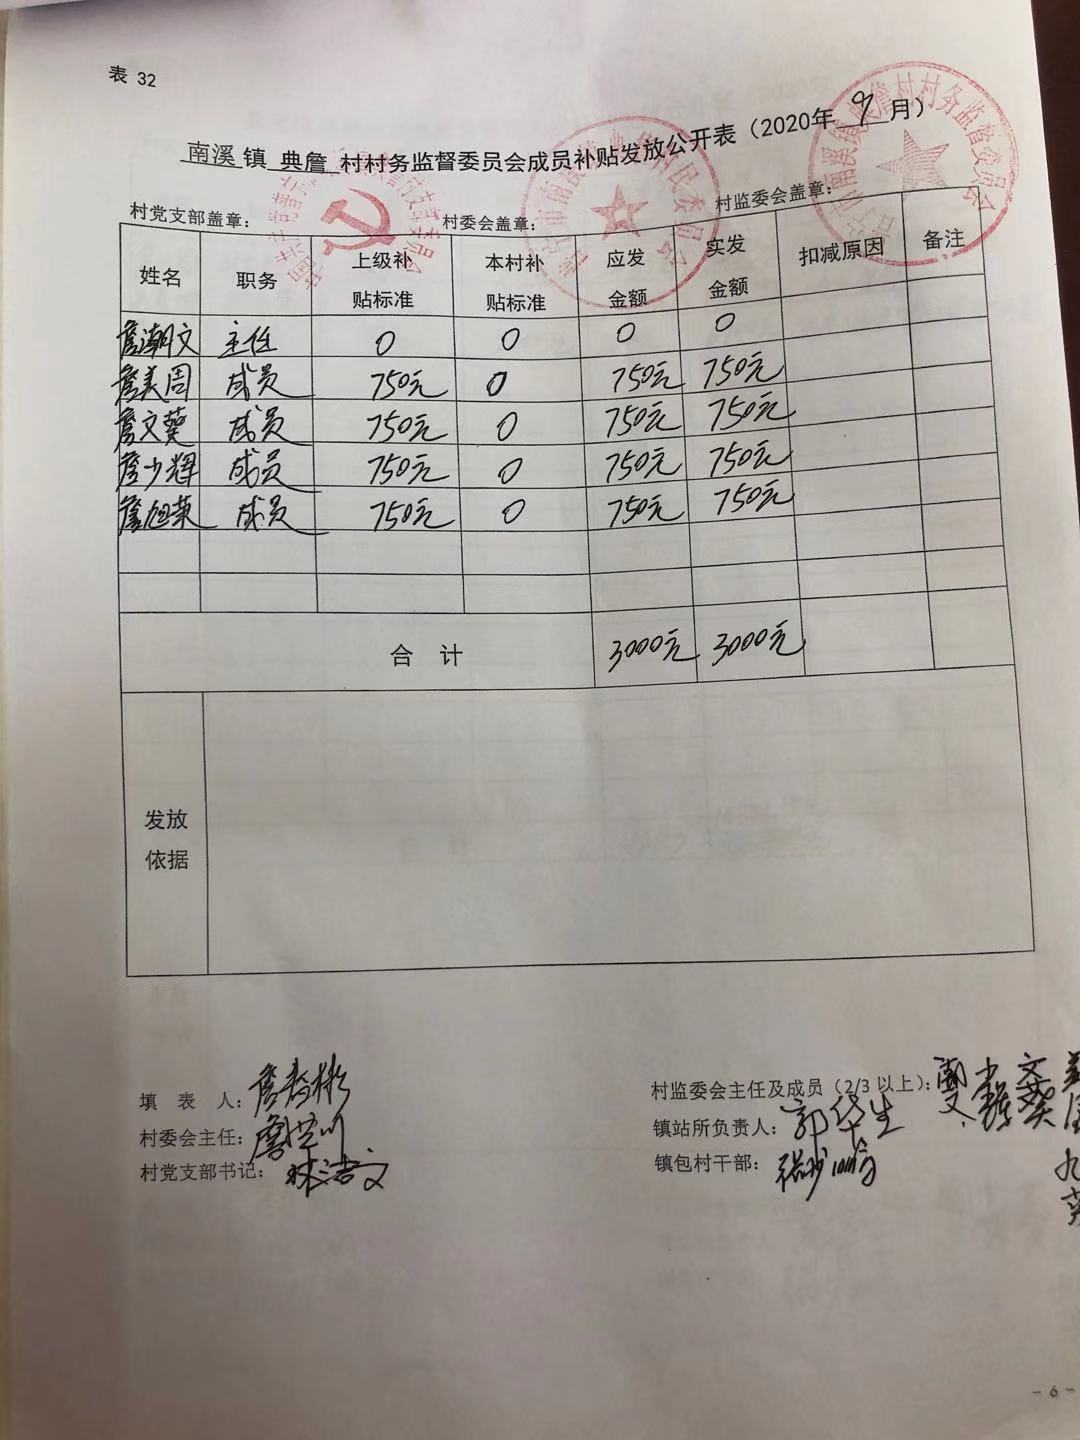 表 32
南溪镇 典詹 村村务监督委员会成员补贴发放公开表（2020年 9 月）
村党支部盖章： 村委会盖章： 村监委会盖章：
姓名 职务 上级补贴标准 本村补贴标准 应发金额 实发金额 扣减原因 备注
詹潮文 主任 0 0 0 0
詹美周 成员 750元 0 750元 750元
詹文葵 成员 750元 0 750元 750元
詹少辉 成员 750元 0 750元 750元
詹旭英 成员 750元 0 750元 750元
合 计 3000元 3000元
发放依据
填 表 人：
村委会主任：
村党支部书记：
村监委会主任及成员（2/3 以上）：
镇站所负责人：
镇包村干部：
- 6 -